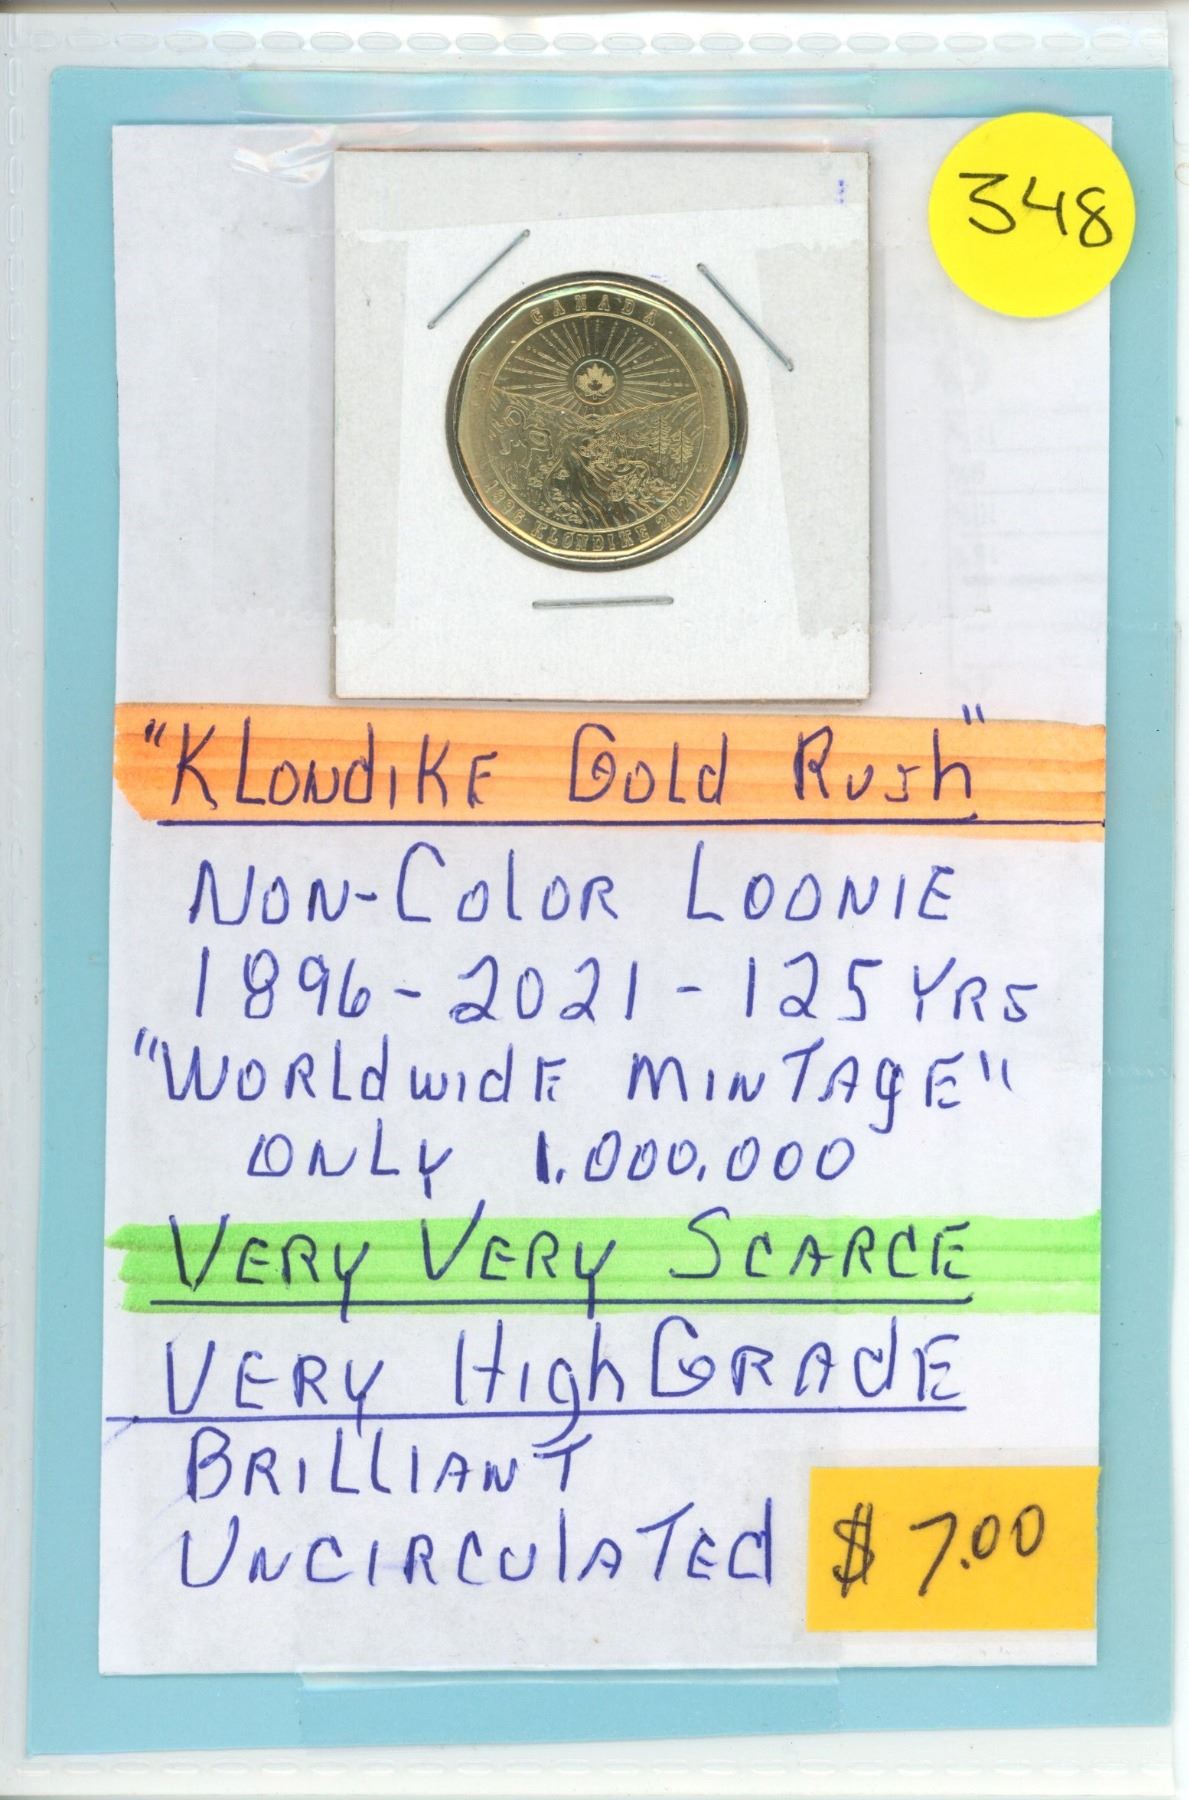 348
CANADA
1896 KLONDIKE 2021
"KLONDIKE GOLD RUSH"
NON-COLOR LOONIE
1896-2021-125 YRS
"WORLDWIDE MINTAGE"
ONLY 1.000.000
VERY VERY SCARCE
VERY HIGH GRADE
BRILLIANT
UNCIRCULATED
$ 7.00